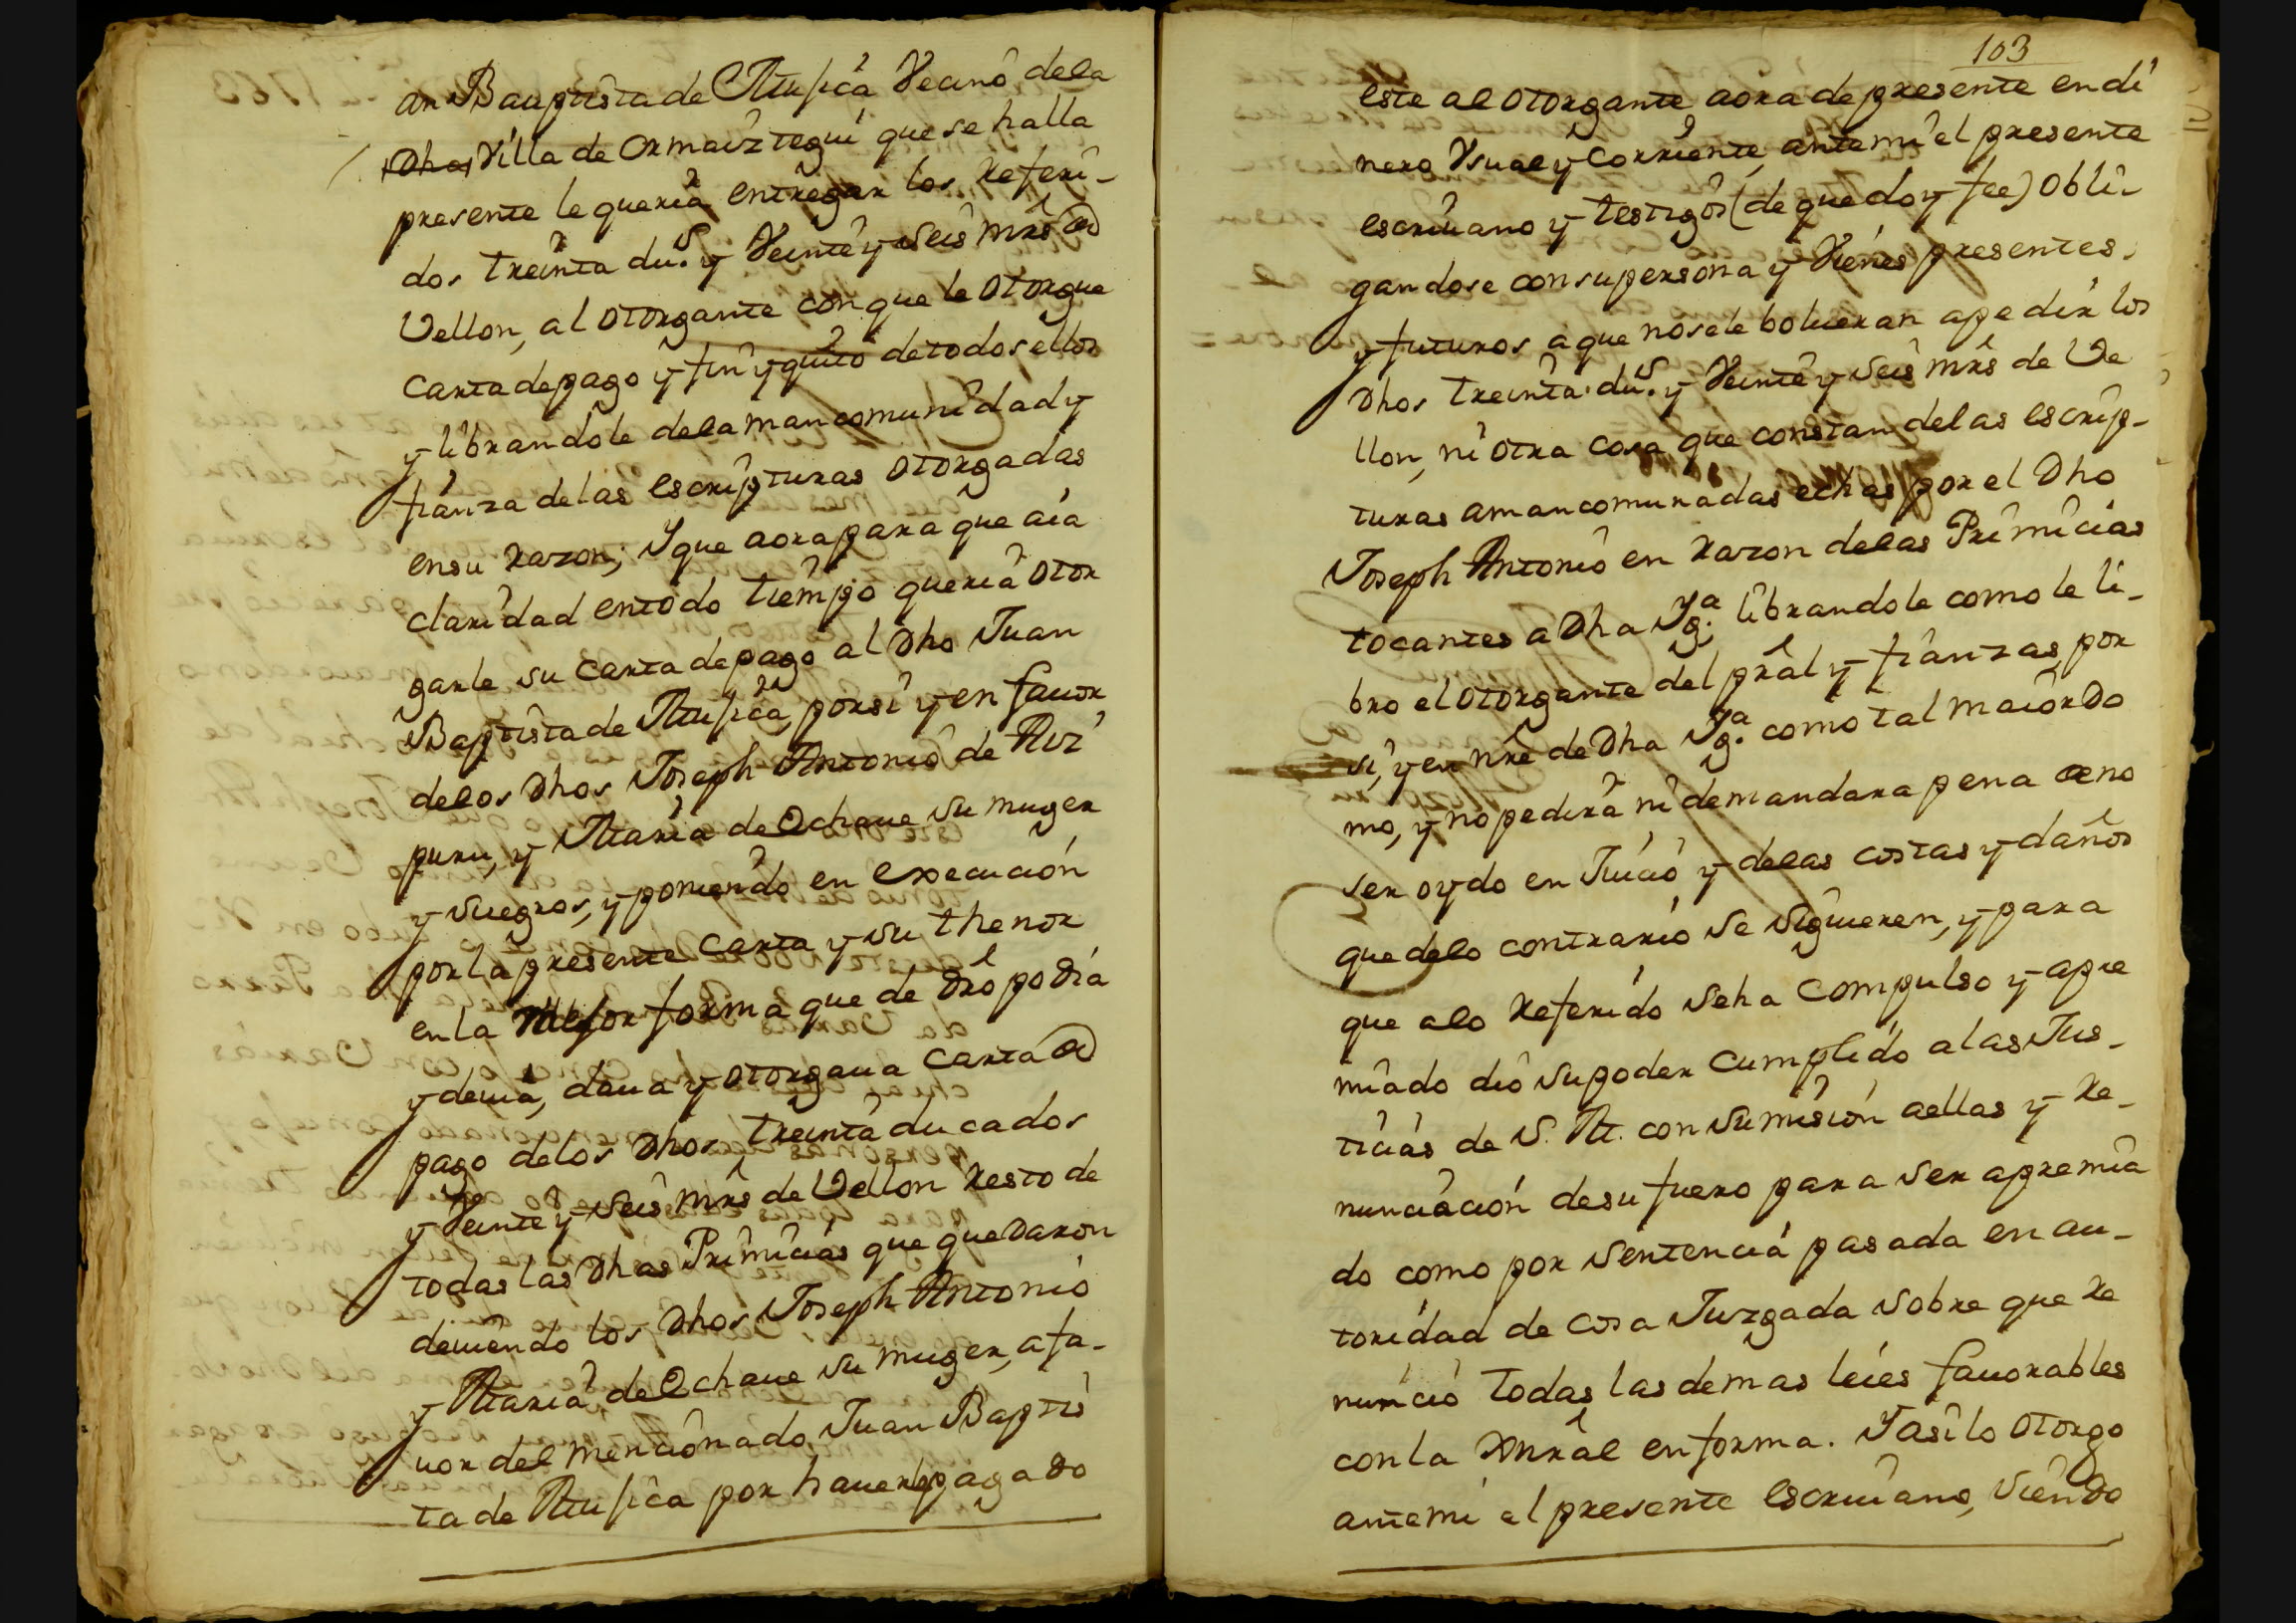 an Bauptista de Mujica Vecino dela
dha Villa de Ormaiztegui que se halla
presente le queria entregar los referi-
dos treinta du.s y Veinte y seis mrs de
Vellon, al otorgante con que le otorgue
Carta de pago y fin y quito de todos ellos
y librandole dela mancomunidad y
fianza delas escripturas otorgadas
en su razon; Y que aora para que aia
claridad en todo tiempo queria otor
garle su Carta de pago al dho Juan
Baptista de Mujica por si y en fauor
delos dhos Joseph Antonio de Aiz
puru, y Maria de Ochaue su muger
y suegros, y poniendo en execucion
por la presente Carta y su thenor
en la mejor forma que de dro podia
y deuia, daua y otorgaua Carta de
pago delos dhos treinta ducados
y Veinte y seis mrs de Vellon resto de
todas las dhas Primicias que quedaron
deuiendo los dhos Joseph Antonio
y Maria de Ochaue su muger, a fa-
uor del mencionado Juan Baptis
ta de Mujica por hauerle pagado
103
este al otorgante aora de presente en di
nero Vsual y Corriente, ante mi el presente
escriuano y testigos (de que doy fee) obli-
gandose con su persona y Vienes presentes
y futuros a que no se le bolueran a pedir los
dhos treinta du.s y Veinte y seis mrs de Ve
llon, ni otra cosa que constan delas escrip-
turas amancomunadas echas por el dho
Joseph Antonio en razon delas Primicias
tocantes a dha Yg.a librandole como le li-
bro el otorgante del pral y fianzas por
si, y en nre de dha Yg.a como tal maiordo
mo, y no pedira ni demandara pena de no
ser oydo en Juicio y delas costas y daños
que delo contrario se siguieren, y para
que alo referido seha Compulso y apre
miado dio su poder Cumplido alas Jus-
ticias de S. M. con sumision aellas y re-
nunciacion de su fuero para ser apremia
do como por sentencia pasada en au-
toridad de cosa Juzgada sobre que re
nuncio todas las demas leies fauorables
con la Gnral en forma. Y asi lo otorgo
ante mi el presente escriuano, siendo